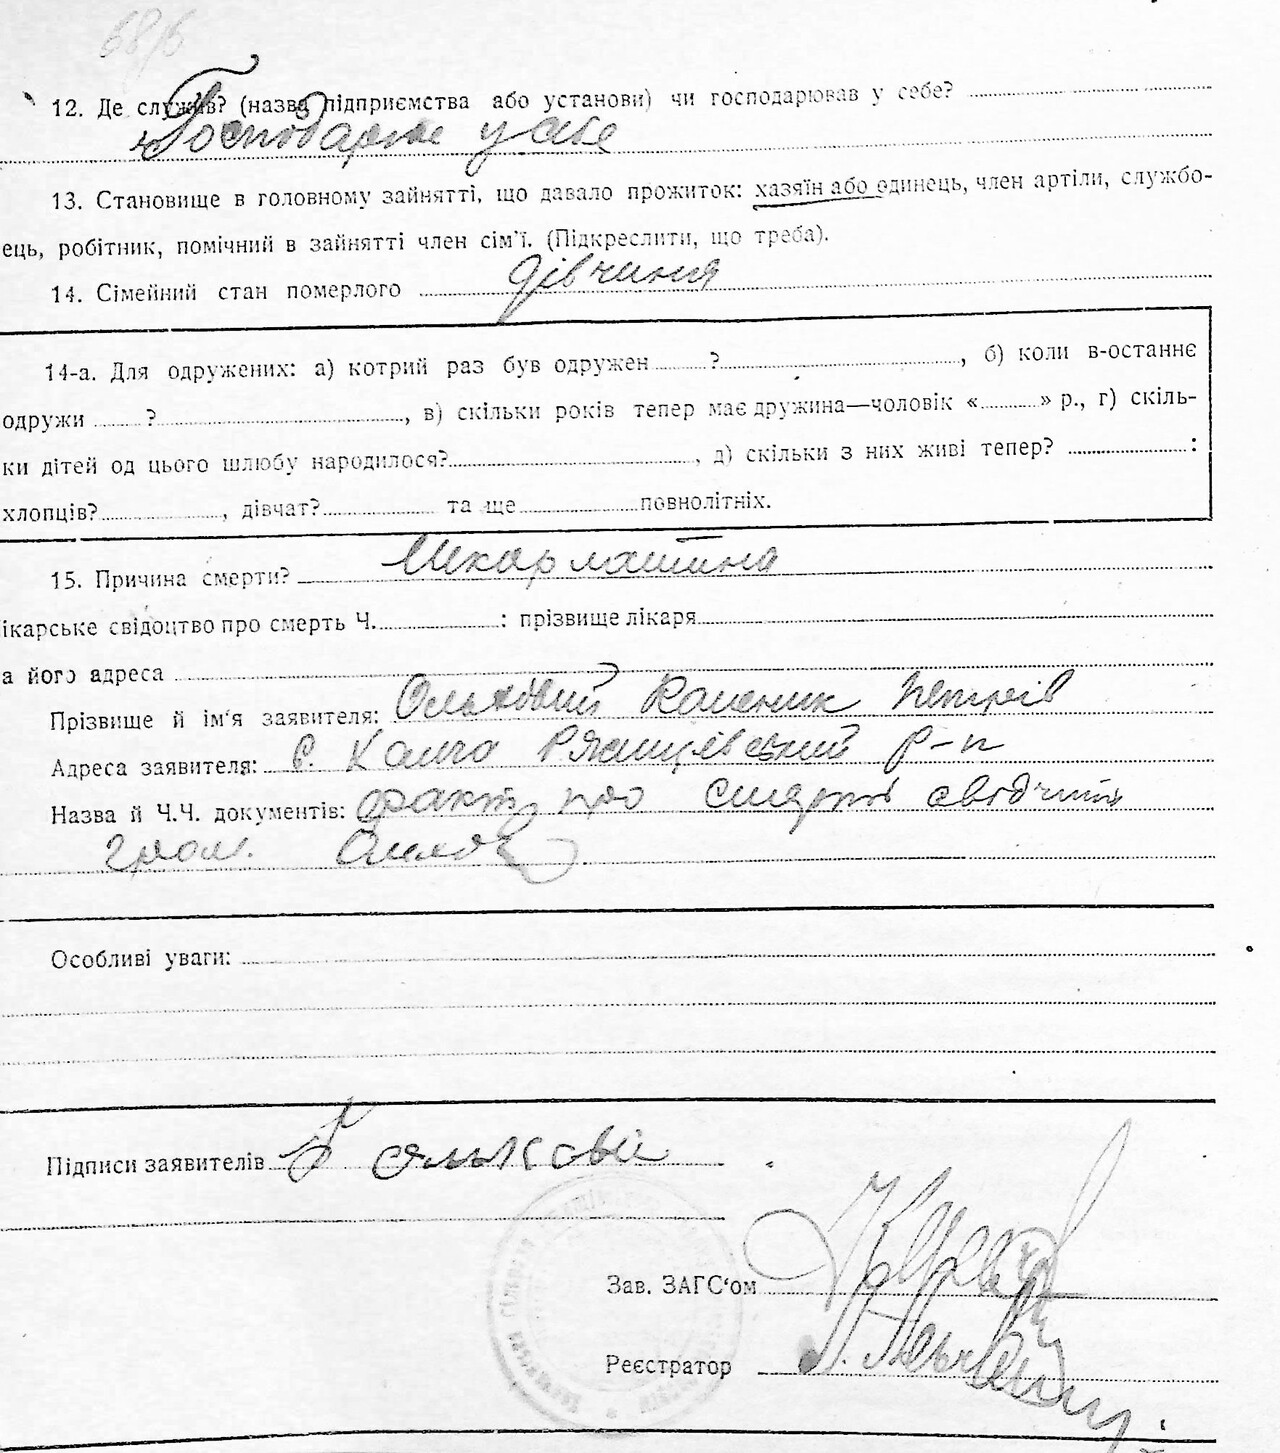 68/6
12. Де служив? (назва підприємства або установи) чи господарював у себе?
Господарює у себе
13. Становище в головному зайнятті, що давало прожиток: хазяїн або одинець, член артіли, службо-
ець, робітник, помічний в зайнятті член сім'ї. (Підкреслити, що треба).
14. Сімейний стан померлого дівчина
14-а. Для одружених: а) котрий раз був одружен ? , б) коли в-останнє
одружи ? , в) скільки років тепер має дружина—чоловік « » р., г) скіль-
ки дітей од цього шлюбу народилося? , д) скільки з них живі тепер? :
хлопців? , дівчат? та ще повнолітніх.
15. Причина смерти? Шкарлатина
ікарське свідоцтво про смерть Ч. : прізвище лікаря
а його адреса
Прізвище й ім'я заявителя: Ольховий Каленик Петрів
Адреса заявителя: с. р-н
Назва й Ч.Ч. документів: факт про смерть сводчить
гром.
Особливі уваги:
Підписи заявителів
Зав. ЗАГС'ом
Реєстратор